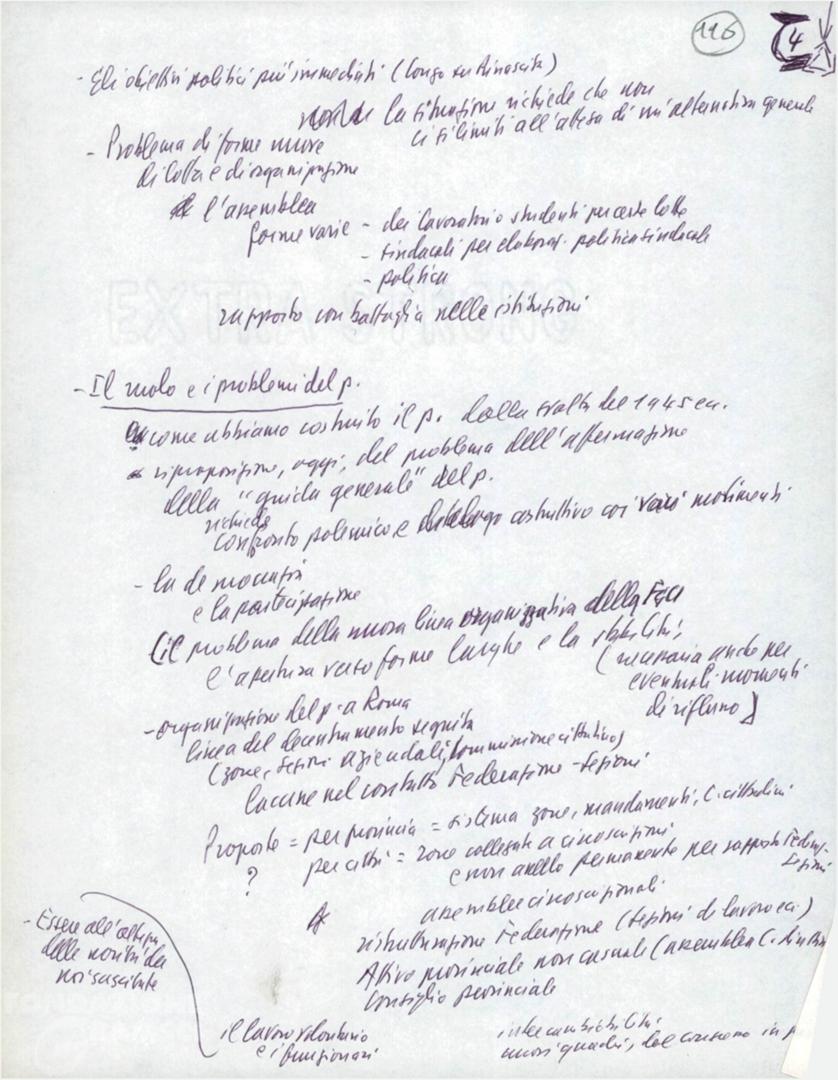 116
4
- Gli obiettivi politici più immediati (Longo su Rinascita)
la situazione richiede che non
ci si limiti all'attesa di un'alternativa generale
- Problema di forme nuove
di lotta e di organizzazione
l'assemblea
forme varie - dei lavoratori o studenti per certe lotte
- sindacali per elaboraz. politica sindacale
- politica
rapporto con battaglia nelle istituzioni
EXTRA STRONG
- Il ruolo e i problemi del p.
come abbiamo costruito il p. dalla svolta del 1945 ecc.
riproposizione, oggi, del problema dell'affermazione
della "guida generale" del p.
richiede
confronto polemico e dialogo costruttivo coi vari movimenti
- la democrazia
e la partecipazione
(il problema della nuova linea organizzativa della Fgci
l'apertura verso forme larghe e la stabilità,
(necessaria anche per
eventuali momenti
di riflusso)
- organizzazione del p. a Roma
linea del decentramento seguita
(zone, sezioni aziendali, commissione cittadina)
lacune nel contatto Federazione - sezioni
Proposte = per provincia = sistema zone, mandamenti, C. cittadini
? per città = zone collegate a circoscrizioni
e non anello permanente per rapporto Federaz.-
sezioni
assemblee circoscrizionali
ristrutturazione Federazione (sezioni di lavoro ecc.)
Attivo provinciale non casuale (assemblea C.
Consiglio provinciale
- Essere all'altezza
delle novità da
noi suscitate
il lavoro volontario
e i funzionari
intercambiabilità
nuovi quadri, del consenso in